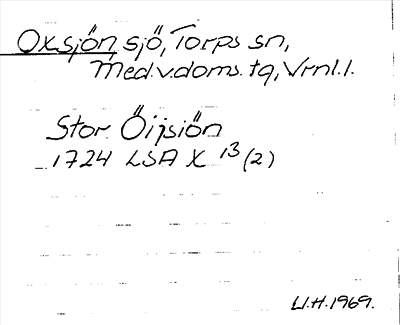 Oxsjön sjö, Torps sn,
Med.v.doms. tg, Vrnl.l.
Stor Öijsiön
1724 LSA X 13 (2)
U.H. 1969.